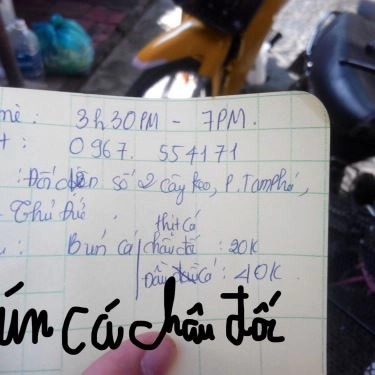 mè: 3h30PM - 7PM.
t: 0967. 554171
: Đối diện số 2 cây keo, P. Tam Phú,
- Thủ Đức
thịt Cá
: Bún cá | châu đố : 20K
Đầu Cá : 40K
ún cá châu đốc